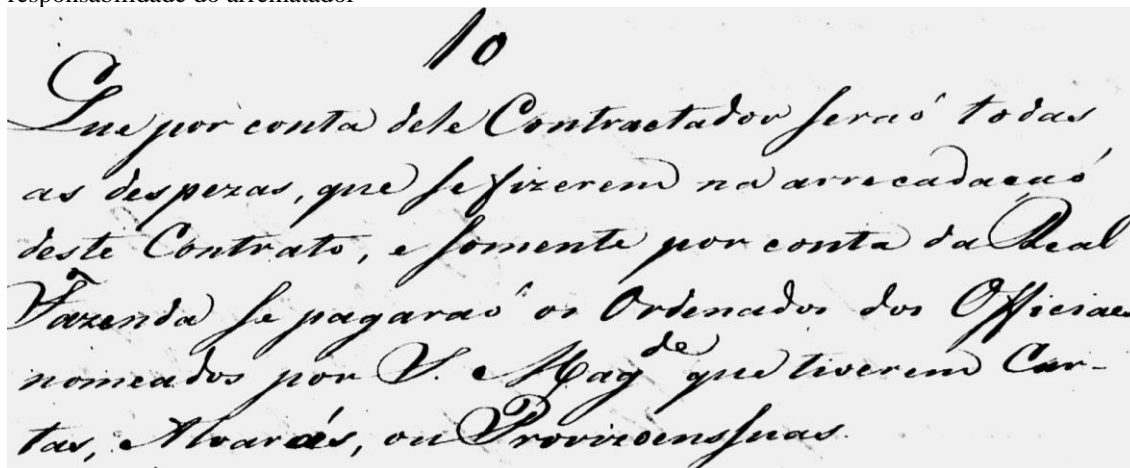 responsabilidade do arrematador
10
Que por conta dele Contractador seraó todas
as despezas, que se fizerem na arrecadacaó
deste Contrato, e somente por conta da Real
Fazenda se pagaraó os Ordenados dos Officiaes
nomeados por S. Mag.de que tiverem Car-
tas, Alvarás, ou Provizoens suas.